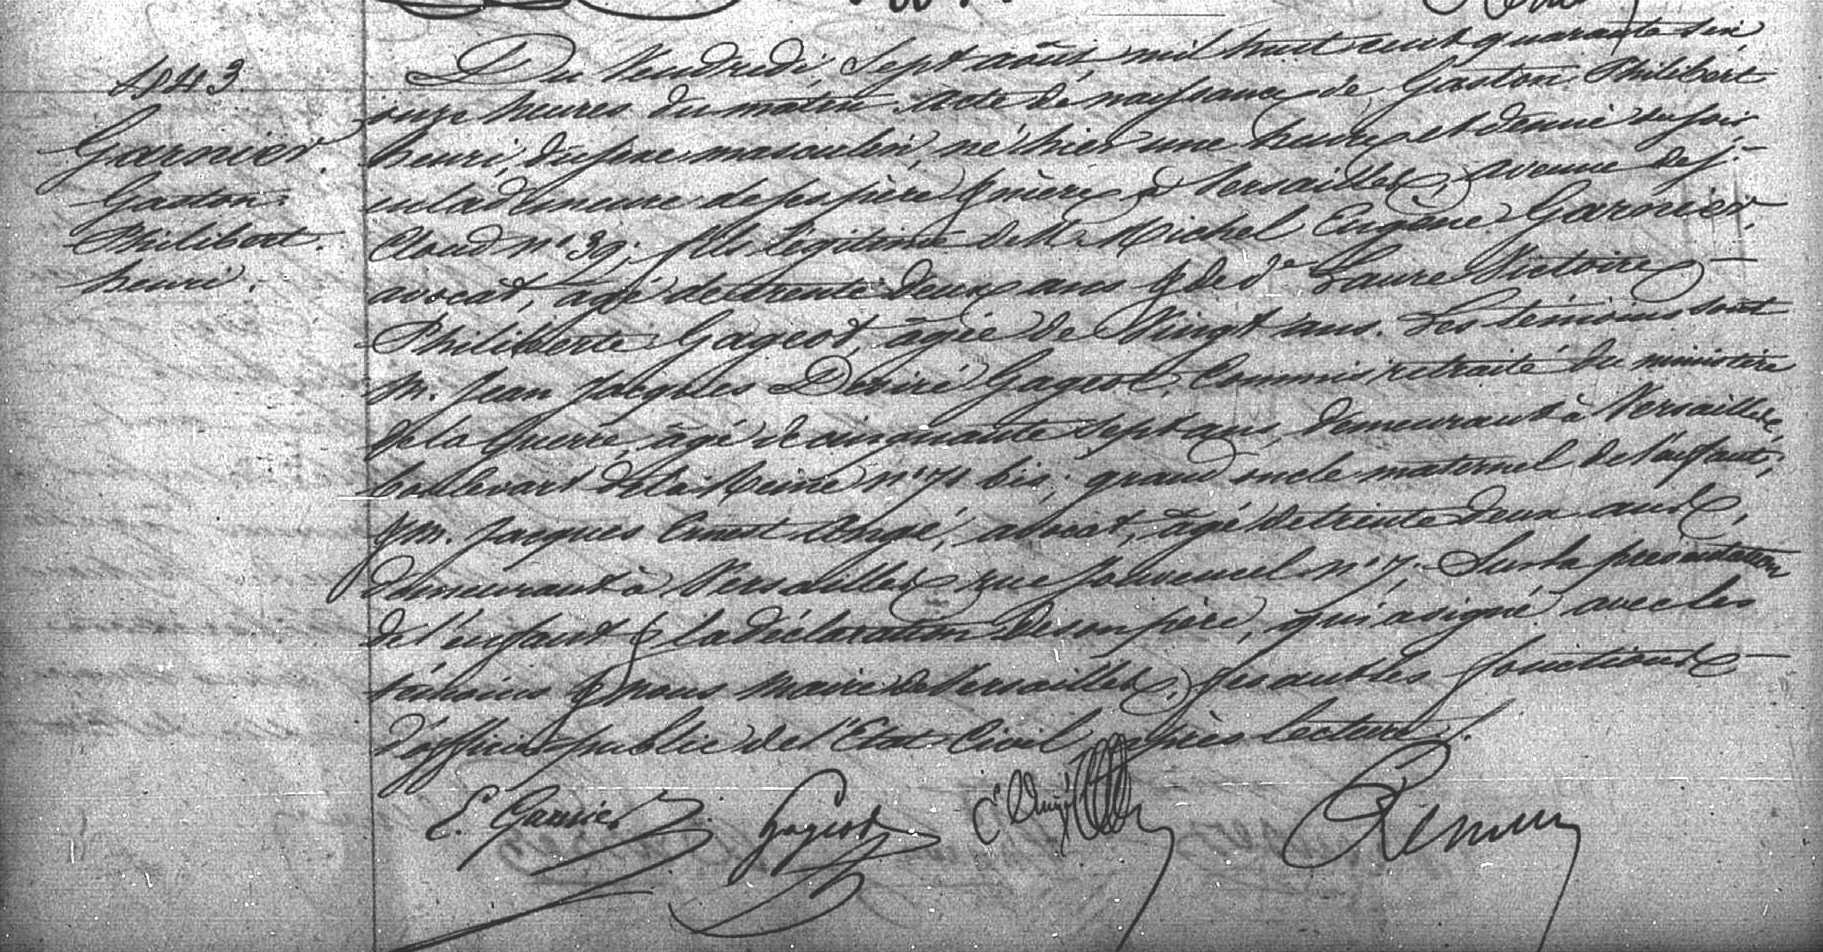 1843.
Garnier.
Gaston
Philibert.
henri.
Du Vendredi, Sept août mil huit cent quarante six
onze heures du matin. Acte de naissance de Gaston Philibert
henri, du sexe masculin, né hier une heure et demie du soir
en la demeure de ses père & mère à Versailles, avenue de St.
Cloud n° 39; fils légitime de M. Michel Eugène Garnier,
avocat, âgé de trente deux ans & de De Laure Victoire
Philiberte Gageot, âgée de Vingt ans. Les témoins sont
M. Jean Jacques Désiré Gageot, Commis retraité du ministère
de la Guerre, âgé de cinquante Sept ans, demeurant à Versailles,
boulevart de la Reine n° 71 bis; grand oncle maternel de l'enfant;
& M. Jacques Ernest Angé, avocat, âgé de trente deux ans,
demeurant à Versailles rue Jouvencel n° 7. Sur la présentation
de l'enfant & la déclaration de son père, qui a signé avec les
témoins & nous Maire de Versailles, fesant les fonctions
d'officier public de l'Etat Civil, après lecture.
E. Garnier Gageot Et Angé Remilly